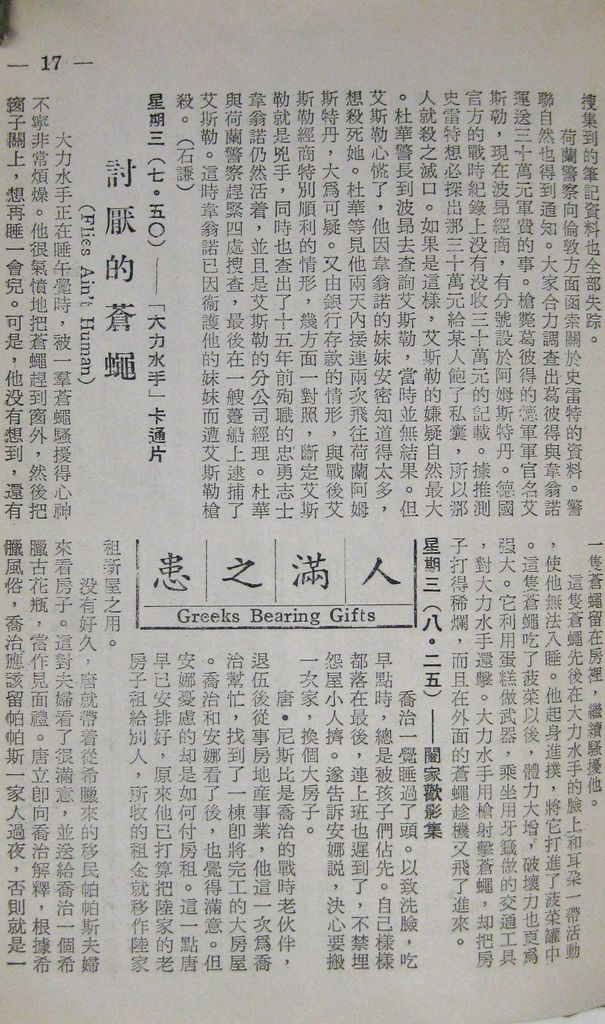 — 17 —
搜集到的筆記資料也全部失踪。
荷蘭警察向倫敦方面函索關於史雷特的資料。警
聯自然也得到通知。大家合力調查出葛彼得與韋翁諾
運送三十萬元軍費的事。槍斃葛彼得的德軍軍官名艾
斯勒，現在波昂經商，有分號設於阿姆斯特丹。德國
官方的戰時紀錄上沒有沒收三十萬元的記載。據推測
史雷特想必探出那三十萬元給某人飽了私囊，所以那
人就殺之滅口。如果是這樣，艾斯勒的嫌疑自然最大
。杜華警長到波昂去查詢艾斯勒，當時並無結果。但
艾斯勒心慌了，他因韋翁諾的妹妹安密知道得太多，
想殺死她。杜華等見他兩天內接連兩次飛往荷蘭阿姆
斯特丹，大爲可疑。又由銀行存款的情形，與戰後艾
斯勒經商特別順利的情形，幾方面一對照，斷定艾斯
勒就是兇手，同時也查出了十五年前殉職的忠勇志士
韋翁諾仍然活着，並且是艾斯勒的分公司經理。杜華
與荷蘭警察趕緊四處搜查，最後在一艘躉船上逮捕了
艾斯勒。這時韋翁諾已因衞護他的妹妹而遭艾斯勒槍
殺。（石謙）
星期三（七·五〇）——「大力水手」卡通片
討厭的蒼蠅
(Flies Ain't Human)
大力水手正在睡午覺時，被一羣蒼蠅騷擾得心神
不寧非常煩燥。他很氣憤地把蒼蠅趕到窗外，然後把
窗子關上，想再睡一會兒。可是，他沒有想到，還有
一隻蒼蠅留在房裡，繼續騷擾他。
這隻蒼蠅先後在大力水手的臉上和耳朶一帶活動
，使他無法入睡。他起身進撲，將它打進了菠菜罐中
。這隻蒼蠅吃了菠菜以後，體力大增，破壞力也更爲
强大。它利用蛋糕做武器，乘坐用牙籤做的交通工具
，對大力水手還擊。大力水手用槍射擊蒼蠅，却把房
子打得稀爛，而且在外面的蒼蠅趁機又飛了進來。
星期三（八·二五）——闔家歡影集
人滿之患
Greeks Bearing Gifts
喬治一覺睡過了頭。以致洗臉，吃
早點時，總是被孩子們佔先。自己樣樣
都落在最後，連上班也遲到了，不禁埋
怨屋小人擠。遂告訴安娜説，決心要搬
一次家，換個大房子。
唐·尼斯比是喬治的戰時老伙伴，
退伍後從事房地産事業，他這一次爲喬
治幫忙，找到了一棟卽將完工的大房屋
。喬治和安娜看了後，也覺得滿意。但
安娜憂慮的却是如何付房租。這一點唐
早已安排好，原來他已打算把陸家的老
房子租給別人，所收的租金就移作陸家
租新屋之用。
沒有好久，唐就帶着從希臘來的移民帕帕斯夫婦
來看房子。這對夫婦看了很滿意，並送給喬治一個希
臘古花瓶，當作見面禮。唐立卽向喬治解釋，根據希
臘風俗，喬治應該留帕帕斯一家人過夜，否則就是一